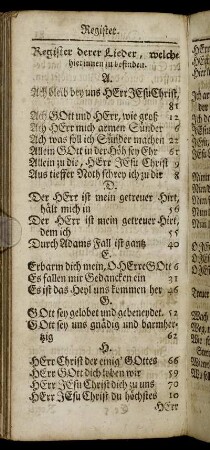 Register.
Register derer Lieder, welche
hierinnen zu befinden.
A.
Ach bleib bey uns HErr JEsu Christ,
81
Ach GOtt und HErr, wie groß 12
Ach HErr mich armen Sünder 6
Ach was soll ich Sünder machen 21
Allein GOtt in der Höh sey Ehr 61
Allein zu dir, HErr JEsu Christ 9
Aus tieffer Noth schrey ich zu dir 8
D.
Der HErr ist mein getreuer Hirt,
hält mich in 56
Der HErr ist mein getreuer Hirt,
dem ich 55
Durch Adams Fall ist gantz 40
E.
Erbarm dich mein, O HErre GOtt 6
Es fallen mir Gedancken ein 31
Es ist das Heyl uns kommen her 46
G.
GOtt sey gelobet und gebenedet. 52
GOtt sey uns gnädig und barmher-
tzig 62
H.
HErr Christ der einig' GOttes 66
HErr GOtt dich loben wir 59
HErr JEsu Christ dich zu uns 70
HErr JEsu Christ du höchstes 10
HErr